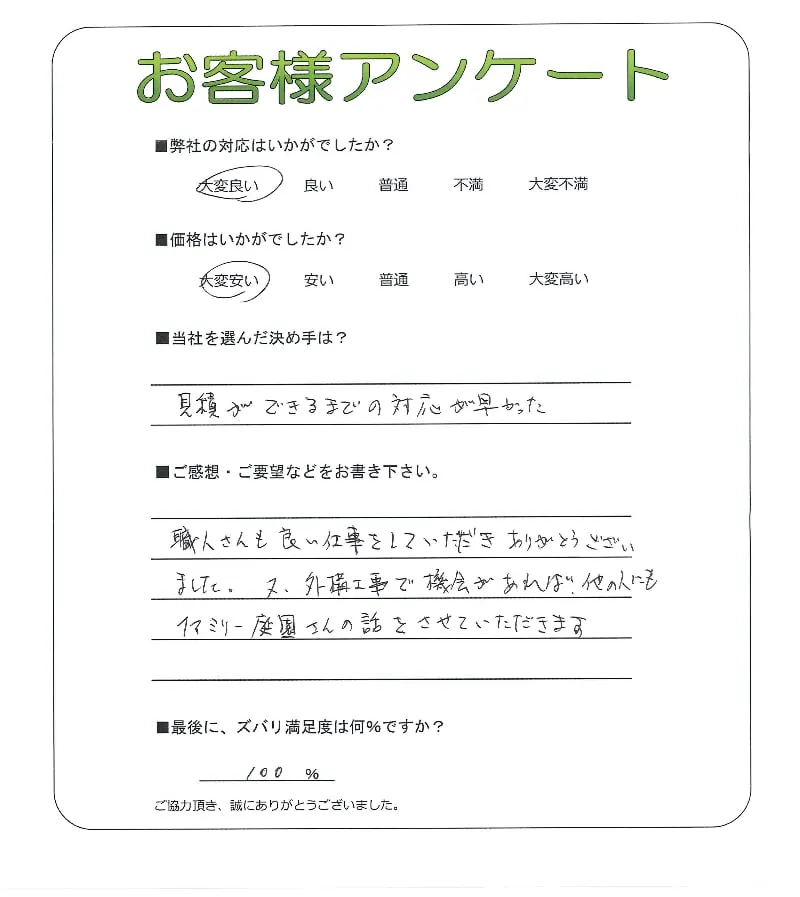 お客様アンケート
■弊社の対応はいかがでしたか？
大変良い 良い 普通 不満 大変不満
■価格はいかがでしたか？
大変安い 安い 普通 高い 大変高い
■当社を選んだ決め手は？
見積ができるまでの対応が早かった
■ご感想・ご要望などをお書き下さい。
職人さんも良い仕事をしていただきありがとうござい
ました。又、外構工事で機会があれば、他の人にも
イマミリー庭園さんの話をさせていただきます
■最後に、ズバリ満足度は何%ですか？
100 %
ご協力頂き、誠にありがとうございました。